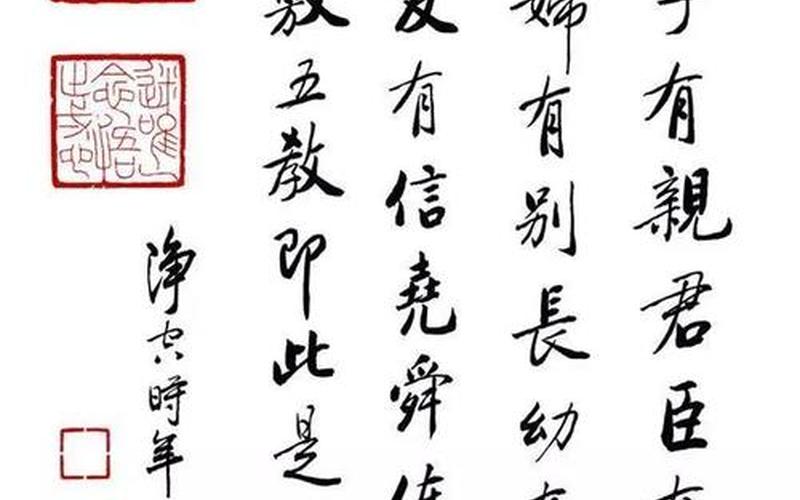 子有親君臣有
婦有別長幼有
友有信堯舜使
敷五教即此是
淨空時年